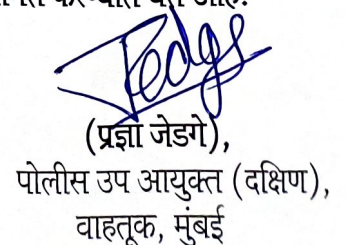 Jedge
(प्रज्ञा जेडगे),
पोलीस उप आयुक्त (दक्षिण),
वाहतूक, मुंबई